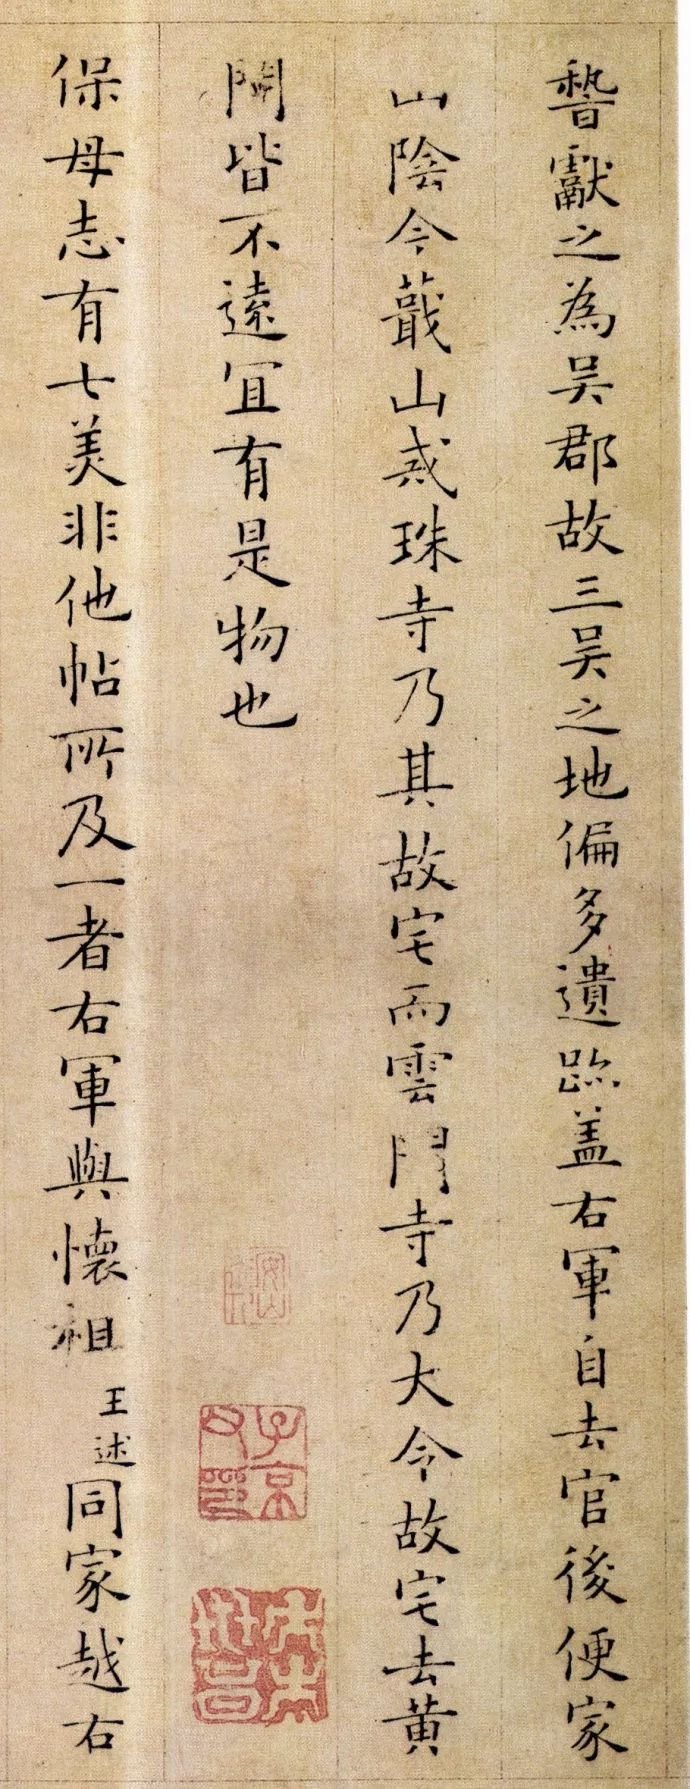 稽獻之為吳郡故三吳之地偏多遺跡盖右軍自去官後便家
山陰今蕺山戒珠寺乃其故宅而雲門寺乃大令故宅去黃
閍皆不遠宜有是物也
子京父印
保母志有七美非他帖所及一者右軍與懷祖王述同家越右